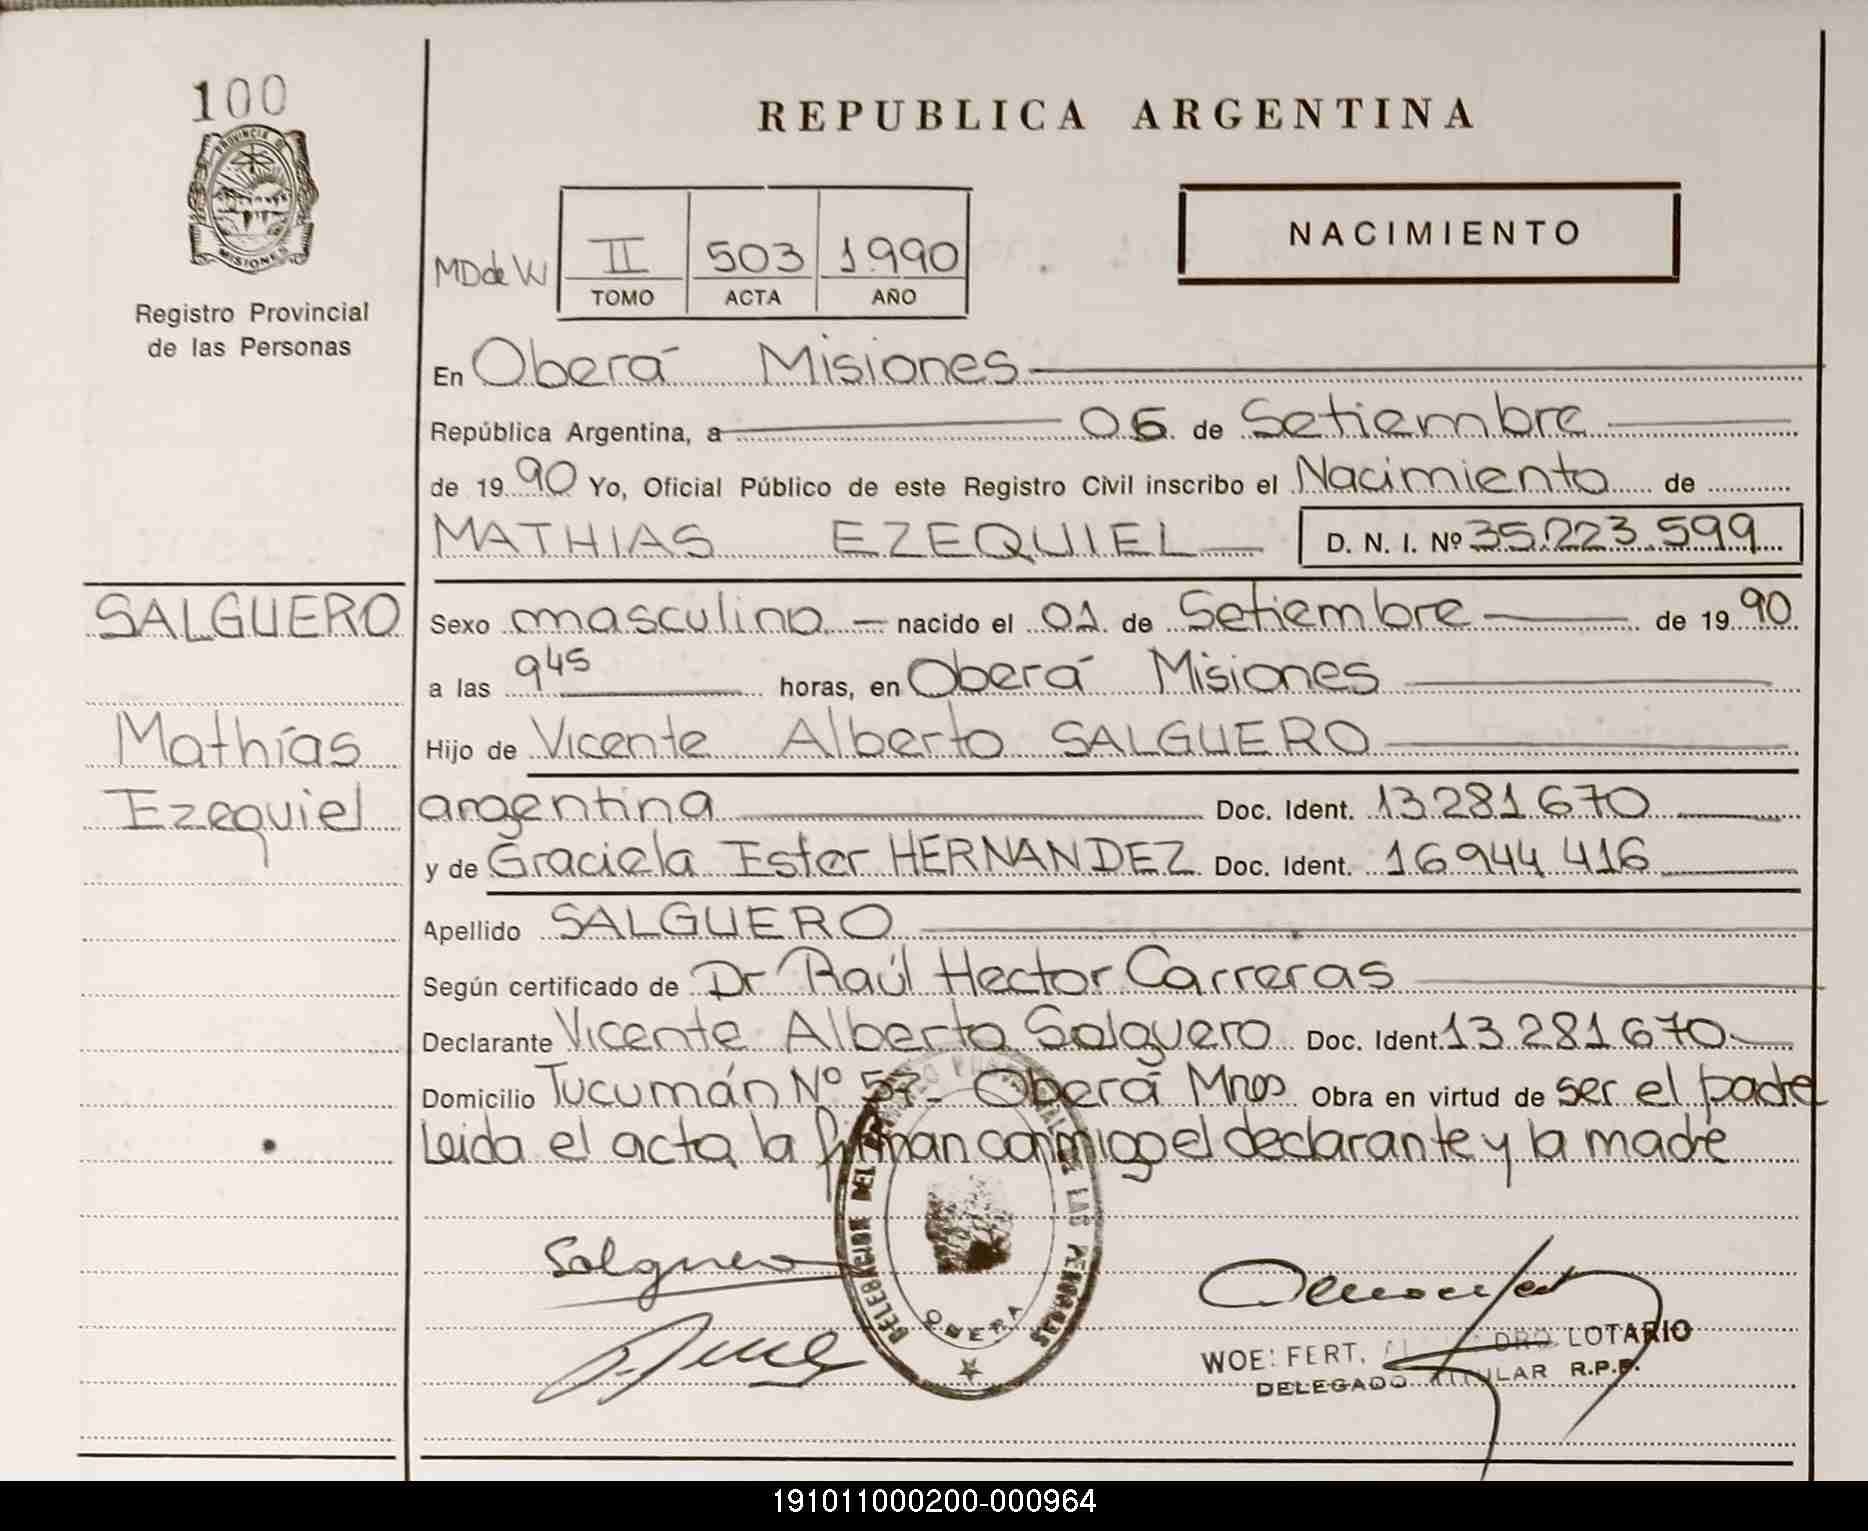 100
PROVINCIA DE
MISIONES
Registro Provincial
de las Personas
SALGUERO
Mathías
Ezequiel
REPUBLICA ARGENTINA
NACIMIENTO
MD de W
II 503 1990
TOMO ACTA AÑO
En Oberá Misiones
República Argentina, a 06 de Setiembre
de 1990 Yo, Oficial Público de este Registro Civil inscribo el Nacimiento de
MATHIAS EZEQUIEL D. N. I. Nº 35.223.599
Sexo masculino nacido el 01 de Setiembre de 1990
a las 9 45 horas, en Oberá Misiones
Hijo de Vicente Alberto SALGUERO
argentina Doc. Ident. 13281670
y de Graciela Ester HERNANDEZ Doc. Ident. 16944416
Apellido SALGUERO
Según certificado de Dr Raúl Hector Carreras
Declarante Vicente Alberto Salguero Doc. Ident. 13281670
Domicilio Tucumán Nº 57- Oberá Mnes Obra en virtud de ser el padre
Leida el acta la firman conmigo el declarante y la madre
Salguero
DELEGACION DEL LAS PERSONAS
OBERA
FERT. LOTARIO
DELEGADO TITULAR R.P.P.
191011000200-000964